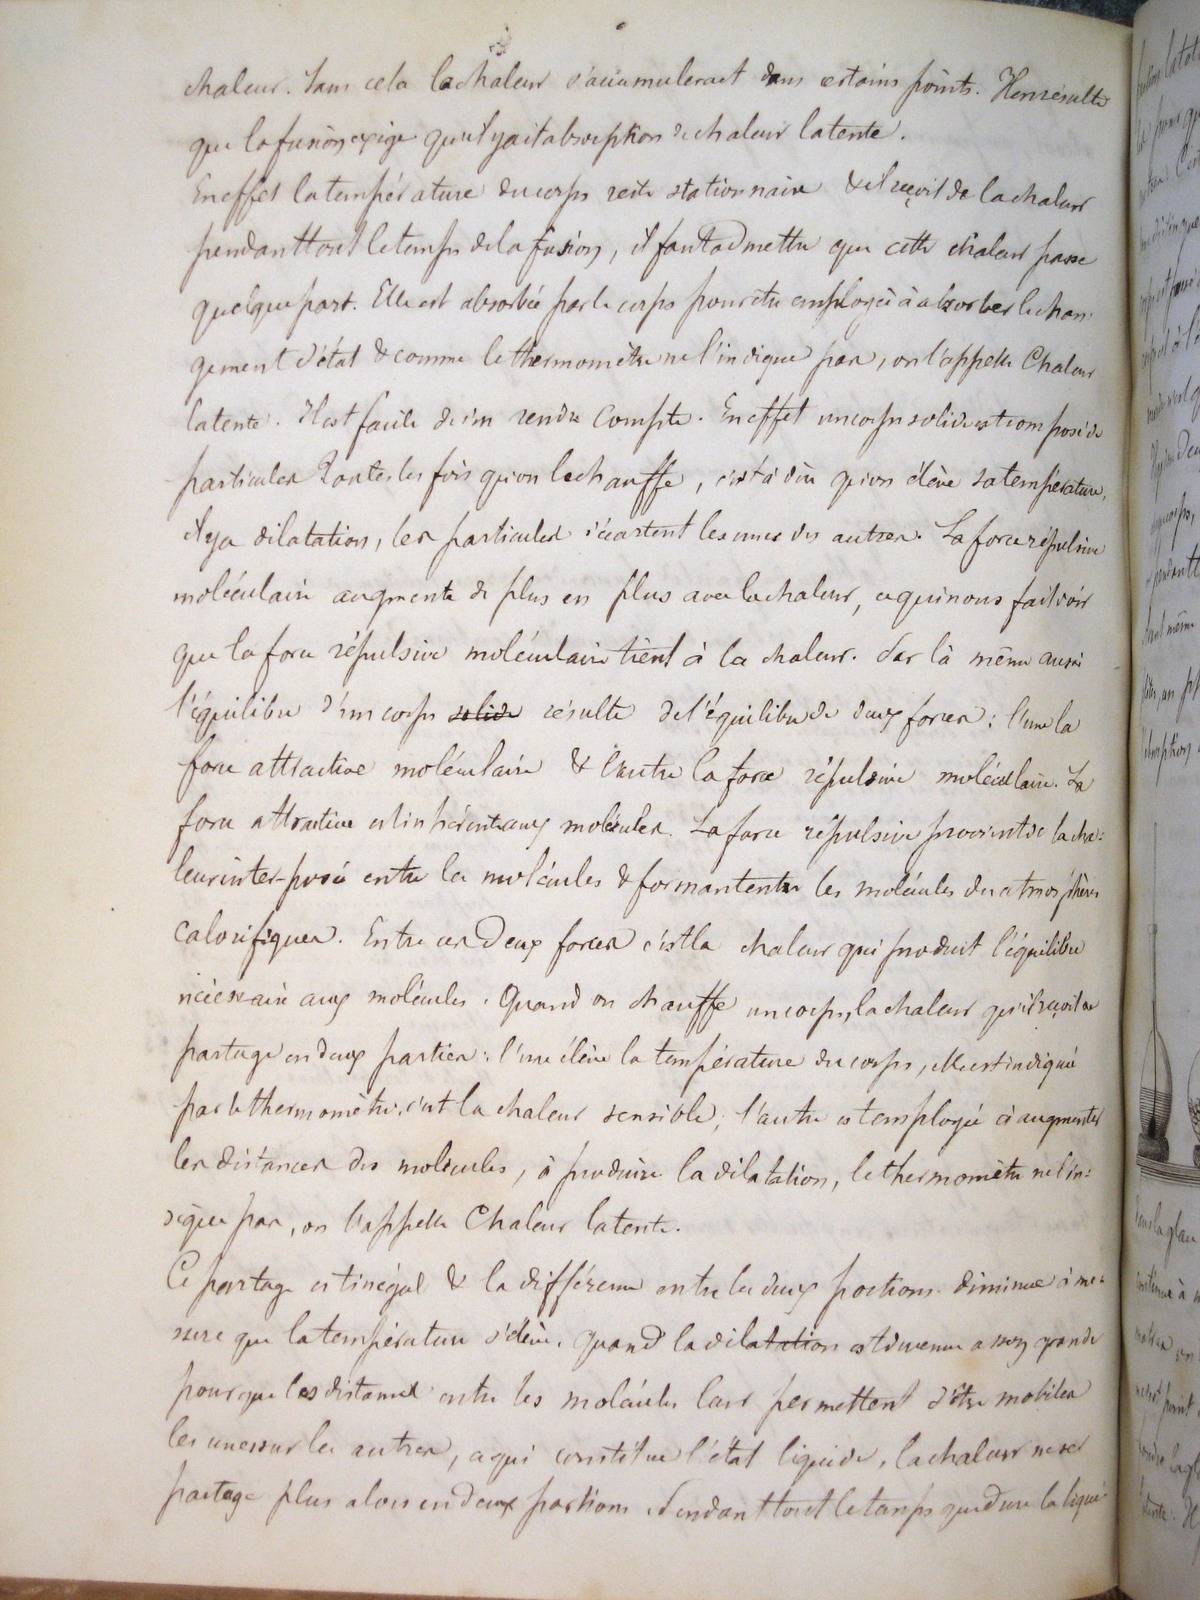 chaleur. Sans cela la chaleur s'accumulerait dans certains points. Il en résulte
que la fusion exige qu'il y ait absorption de chaleur latente.
En effet la température du corps reste stationnaire & il reçoit de la chaleur
pendant tout le temps de la fusion, il faut admettre que cette chaleur passe
quelque part. Elle est absorbée par le corps pour être employée à absorber le chan-
gement d'état & comme le thermomètre ne l'indique pas, on l'appelle Chaleur
latente. Il est facile de s'en rendre compte. En effet un corps solide est composé de
particules Toutes les fois qu'on le chauffe, c'est à dire qu'on élève sa température,
il y a dilatation, les particules s'écartent les unes des autres. La force répulsive
moléculaire augmente de plus en plus avec la chaleur, ce qui nous fait voir
que la force répulsive moléculaire tient à la chaleur. Par là même aussi
l'équilibre d'un corps solide résulte de l'équilibre de deux forces: l'une la
force attractive moléculaire & l'autre la force répulsive moléculaire. La
force attractive est inhérente aux molécules. La force répulsive provient de la cha=
leur inter-posée entre les molécules & formant entre les molécules des atmosphères
calorifiques. Entre ces deux forces c'est la chaleur qui produit l'équilibre
nécessaire aux molécules. Quand on chauffe un corps, la chaleur qu'il reçoit se
partage en deux parties: l'une élève la température du corps, elle est indiquée
par le thermomètre, c'est la chaleur sensible; l'autre est employée à augmenter
les distances des molécules, à produire la dilatation, le thermomètre ne l'in=
dique pas, on l'appelle Chaleur latente.
Ce partage est inégal & la différence entre les deux portions diminue à me=
sure que la température s'élève. Quand la dilatation est devenue assez grande
pour que les distances entre les molécules leur permettent d'être mobiles
les unes sur les autres, ce qui constitue l'état liquide, la chaleur ne se
partage plus alors en deux portions. Pendant tout le temps que dure la liqué